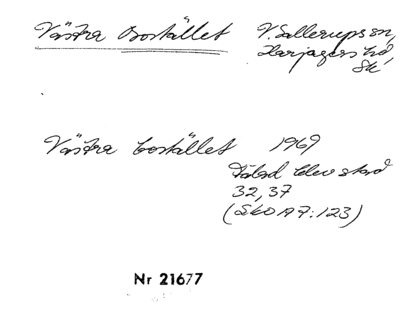 Västra Bostället V. Sallerups sn,
Harjagers hd,
Sk
Västra bostället 1969
blev stad
32, 37
(SkO A7:123)
Nr 21677